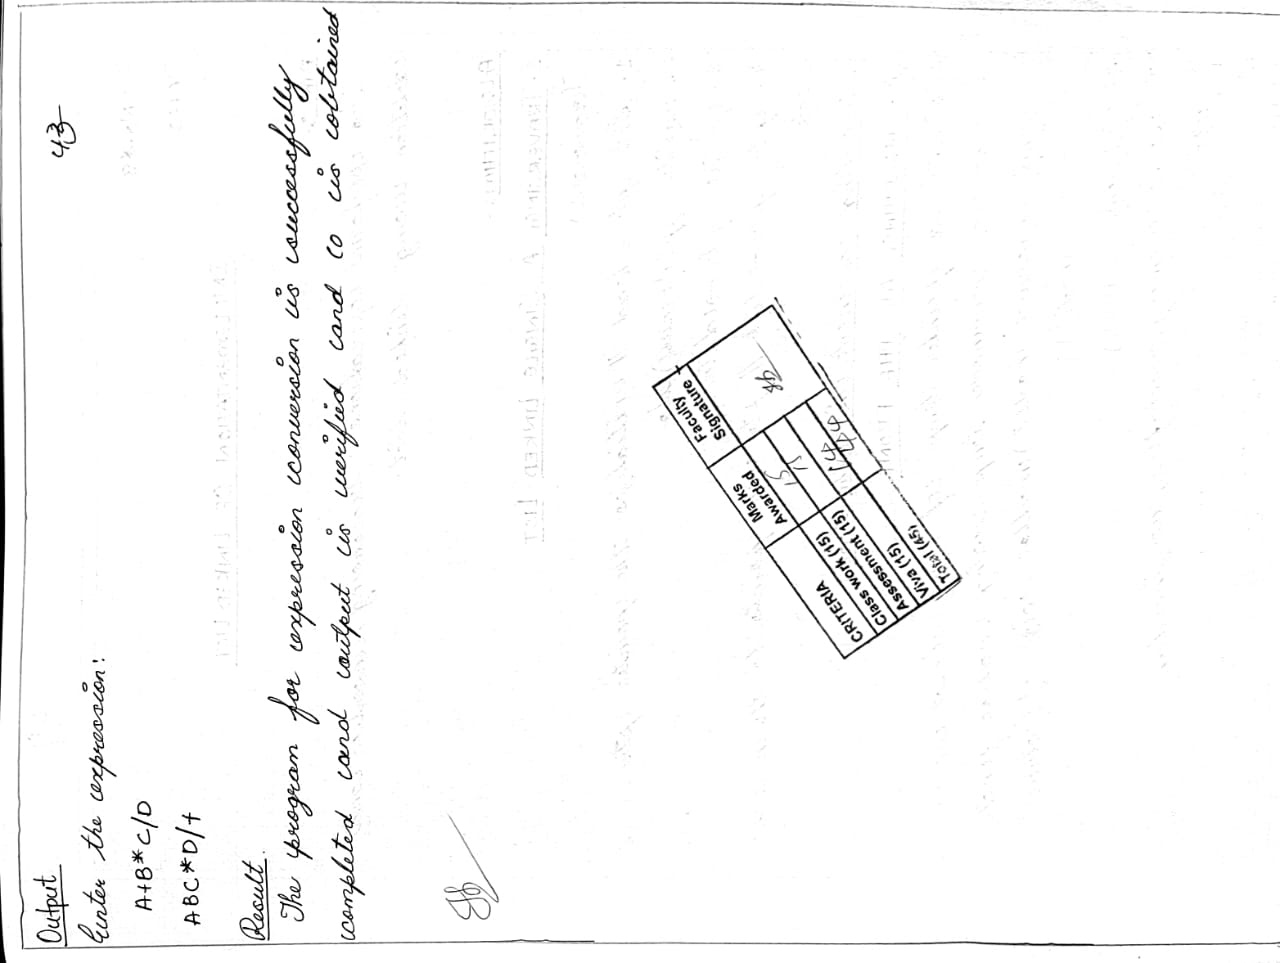 43
Output
Enter the expression:
A+B*C/D
ABC*D/+
Result.
The program for expression conversion is successfully
completed and output is verified and co is obtained
CRITERIA Marks Awarded Faculty Signature
Class work (15) 15
Assessment (15) 15
Viva (15) 14
Total (45) 44